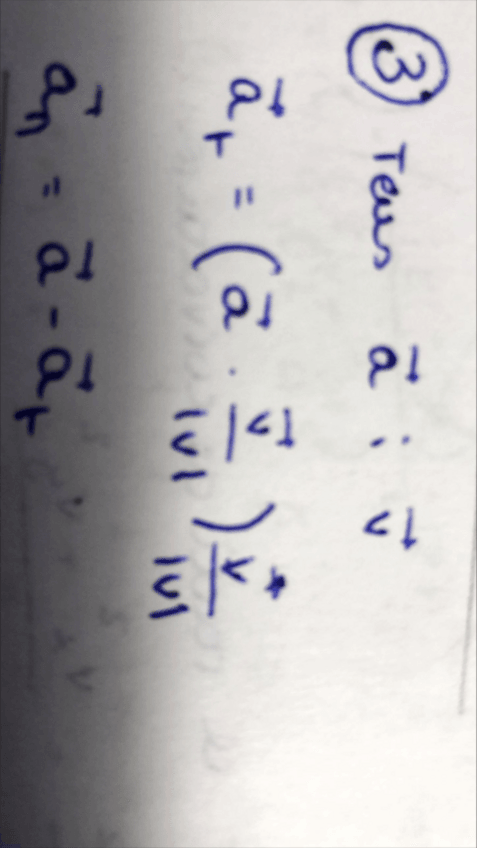 ③ Tens a⃗ i v⃗
a⃗ₜ = (a⃗ · v⃗/|v|) v⃗/|v|
a⃗ₙ = a⃗ - a⃗ₜ